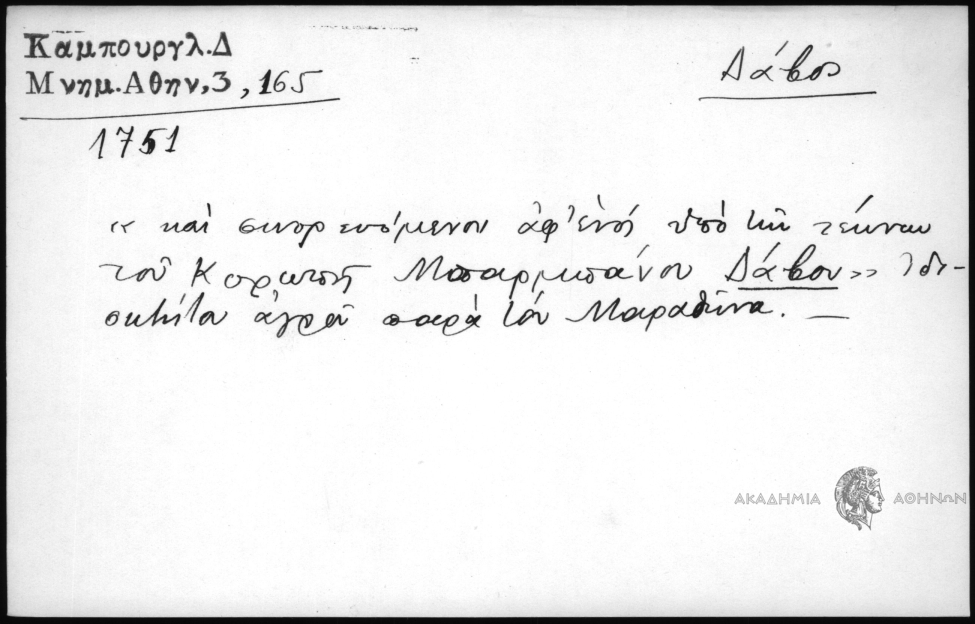 Καμπουργλ.Δ
Μνημ.Αθην,3,165
Δάβος
1751
« καὶ συνορευόμενον ἀφ' ἑνός ὑπὸ τῶν τέκνων
τοῦ Μπαρμπάνου Δάβου» ἰδι-
οκτήτου ἀγρῶν παρὰ τόν Μαραθῶνα. —
ΑΚΑΔΗΜΙΑ ΑΘΗΝΩΝ